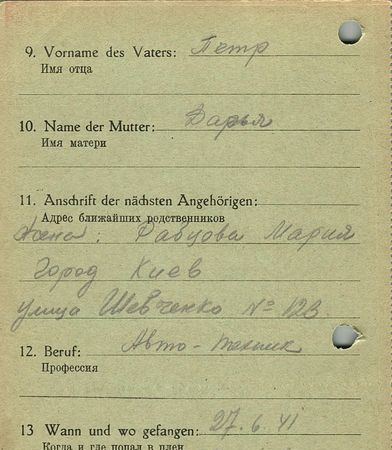 9. Vorname des Vaters: Петр
Имя отца
10. Name der Mutter: Дарья
Имя матери
11. Anschrift der nächsten Angehörigen:
Адрес ближайших родственников
Жена: Равцова Мария
Город Киев
улица Шевченко № 123
12. Beruf: Авто-техник
Профессия
13 Wann und wo gefangen: 27.6.41
Когда и где попал в плен